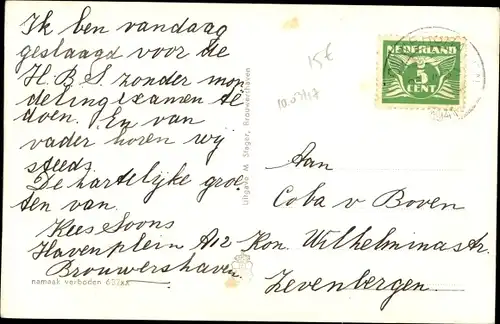 Ik ben vandaag
geslaagd voor de
H.B.S. zonder mon
delingexamen te
doen. En van
vader horen wij
steeds.
De hartelijke groe
ten van.
Kees Soons
Havenplein A12
Brouwershaven.
namaak verboden
Uitgave M Steger, Brouwershaven
15€
NEDERLAND
5
CENT
Aan
Coba v Boven
Kon. Wilhelminastr.
Zevenbergen.